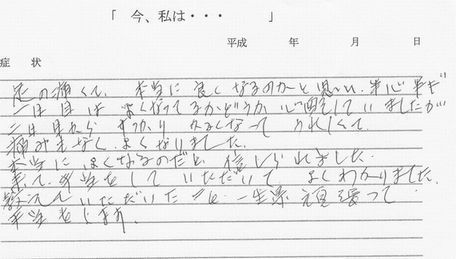 「 今、私は・・・ 」
平成 年 月 日
症 状
足の痛くて、本当に良くなるのかと思い、半心半ギ
一日目は よくなってるかどうか 心配していましたが
二日目から すっかり かるくなって うれしくて
痛みもなく、よくなりました。
本当に よくなるのだと 信じられました。
来て、手当をして いただいて よくわかりました。
教えて いただいた 一生県 頑張って
手当をします。